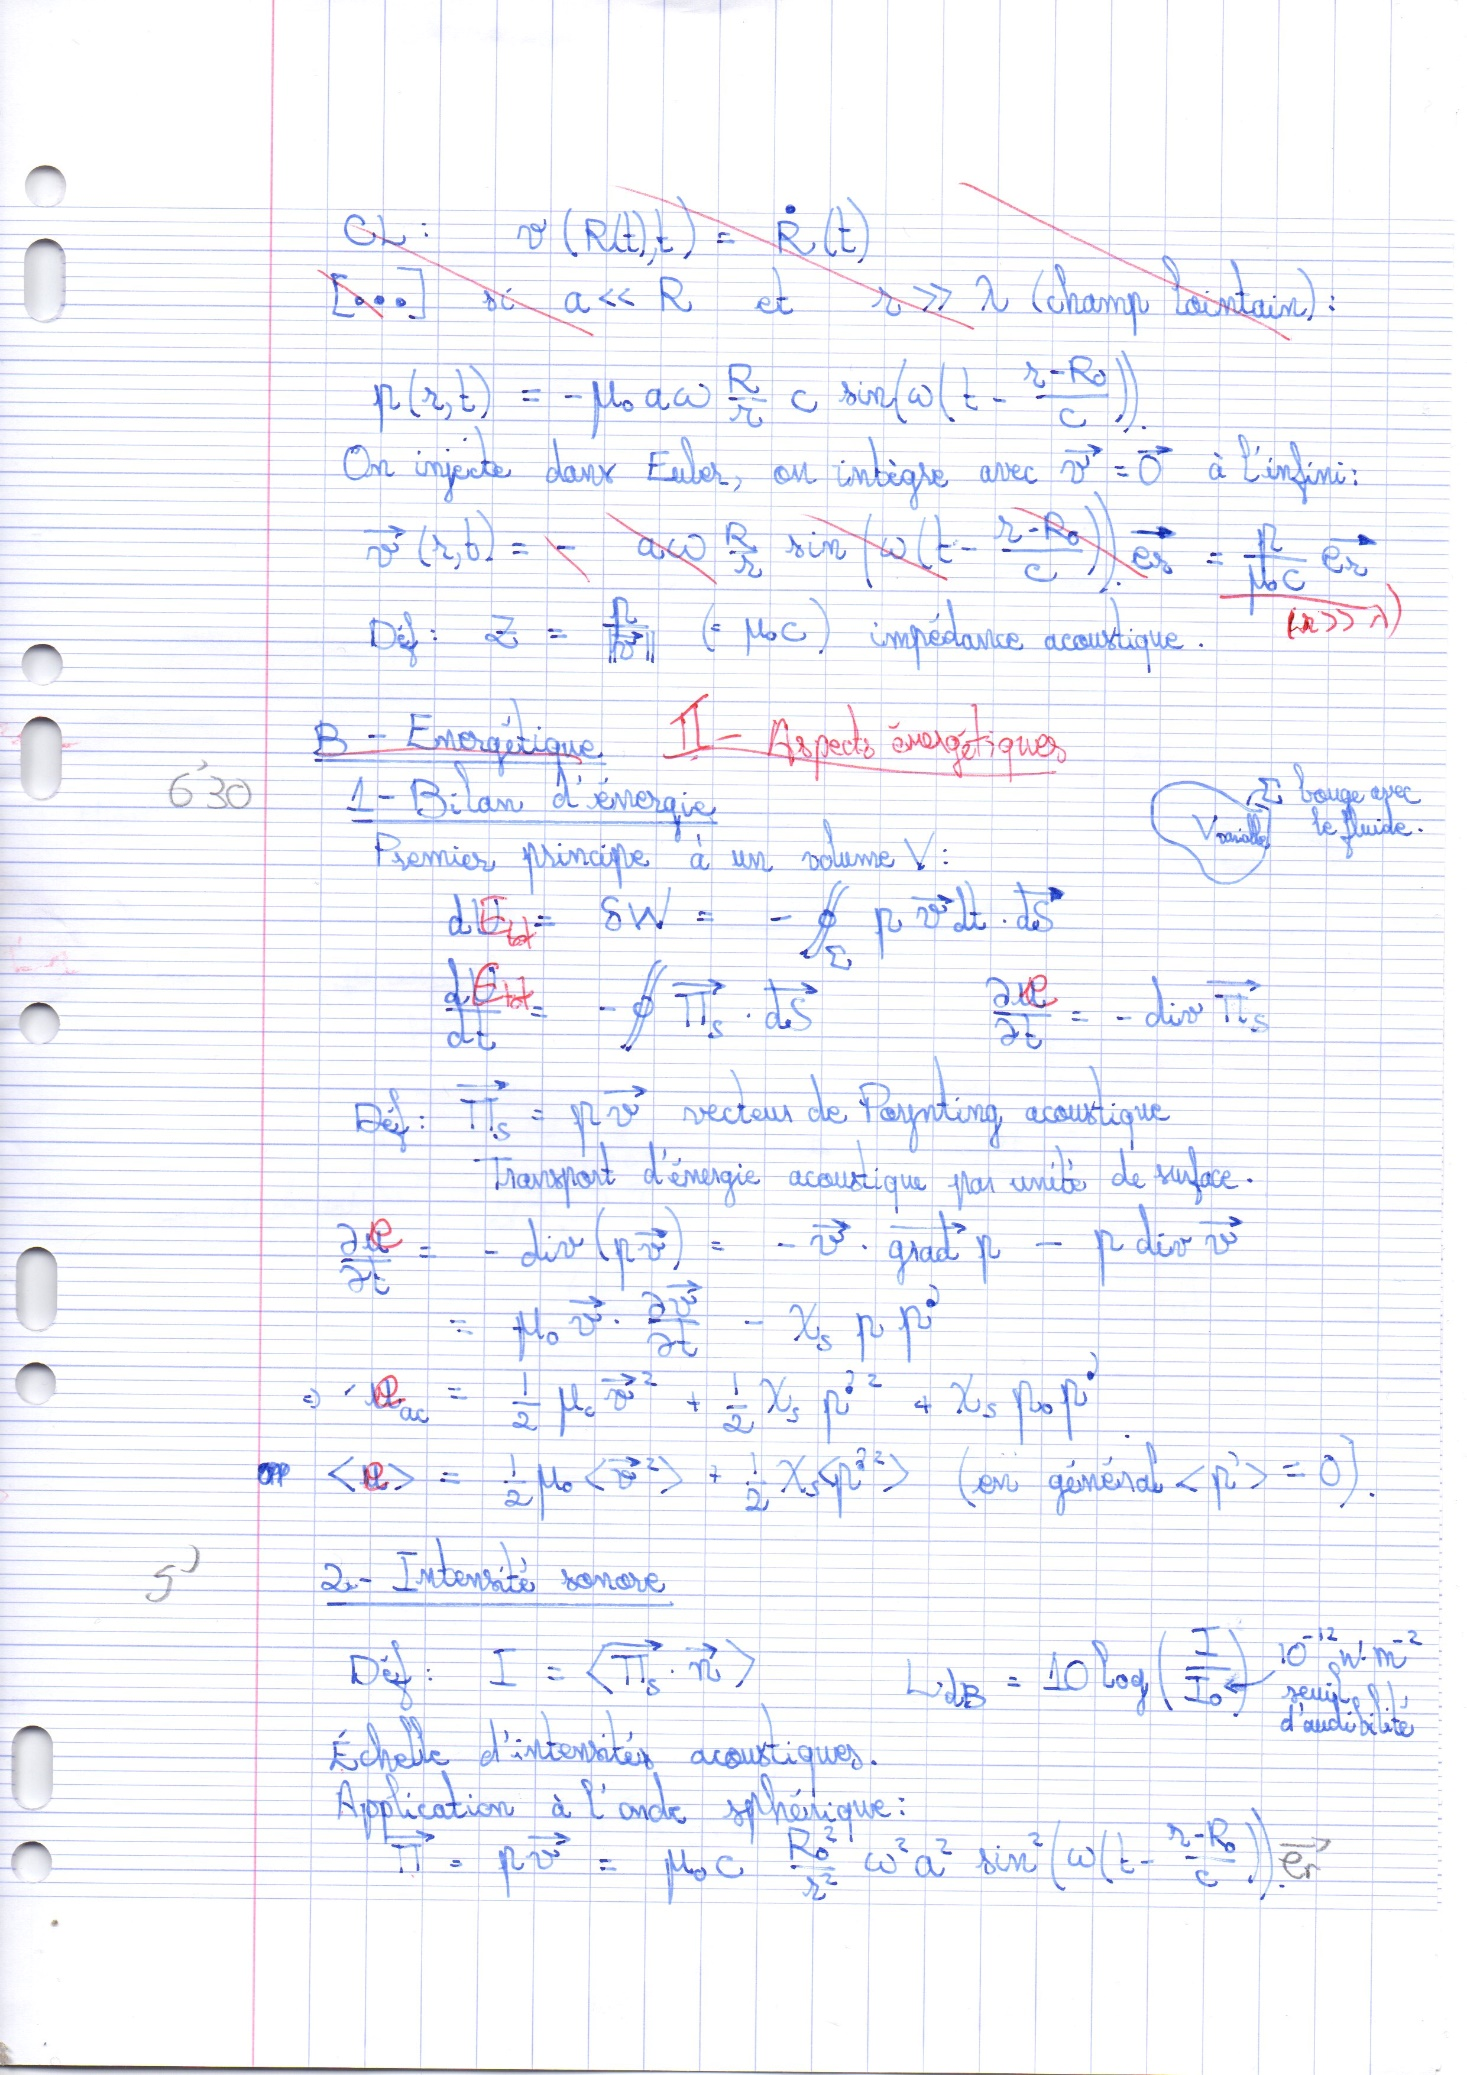 CL : v(R(t),t) = Ṙ(t)
[...] si a << R et r >> λ (champ lointain) :
p(r,t) = -μ₀ aω R/r c sin(ω(t - (r-R₀)/c)).
On injecte dans Euler, on intègre avec v⃗ = 0⃗ à l'infini :
v⃗(r,t) = - aω R/r sin(ω(t - (r-R₀)/c)). e⃗r = p/(μ₀c) e⃗r
(r >> λ)
Déf : Z = p/||v⃗|| (= μ₀c) impédance acoustique.
B - Energétique II - Aspects énergétiques
6'30
1 - Bilan d'énergie
Σ bouge avec
le fluide.
V variable
Premier principe à un volume V :
dE_tot = δW = - ∯_Σ p v⃗dt . dS⃗
dE_tot/dt = - ∯ Π⃗s . dS⃗ ∂e/∂t = - div Π⃗s
Déf : Π⃗s = p v⃗ vecteur de Poynting acoustique
Transport d'énergie acoustique par unité de surface.
∂e/∂t = - div(p v⃗) = - v⃗ . grad⃗ p - p div v⃗
= μ₀ v⃗ . ∂v⃗/∂t - χs p ṗ
⇒ e_ac = 1/2 μ₀ v⃗² + 1/2 χs p'² + χs p₀ p'.
<e> = 1/2 μ₀ <v⃗²> + 1/2 χs <p'²> (en général <p'> = 0).
5'
2 - Intensité sonore
Déf : I = <Π⃗s . n⃗> L_dB = 10 log(I/I₀) 10⁻¹² W.m⁻²
seuil
d'audibilité
Échelle d'intensités acoustiques.
Application à l'onde sphérique :
Π⃗ = p v⃗ = μ₀ c R₀²/r² ω² a² sin²(ω(t - (r-R₀)/c)). e⃗r